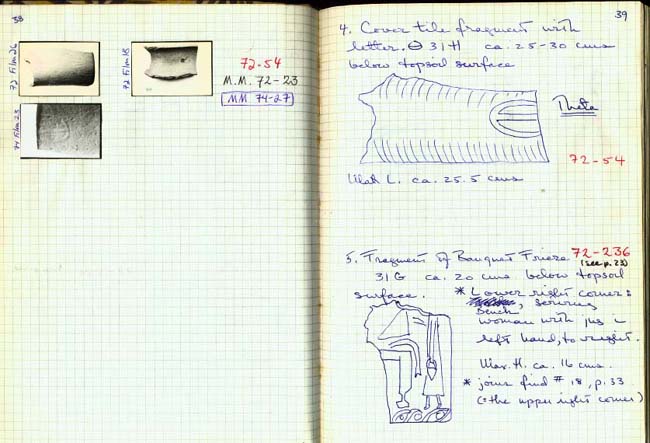 38
72 Film 26
72 Film 18
74 Film 23
72-54
M.M. 72-23
MM 74-27
39
4. Cover tile fragment with
letter. ⊖ 31H ca. 25-30 cms
below topsoil surface
Theta
72-54
Max L. ca. 25.5 cms
5. Fragment of Banquet Frieze 72-236
(see p. 23)
31 G ca. 20 cms below topsoil
surface. * Lower right corner:
bench, serving
woman with jug in
left hand, to right.
Max. H. ca. 16 cms.
* joins find # 18, p. 33
(= the upper right corner)